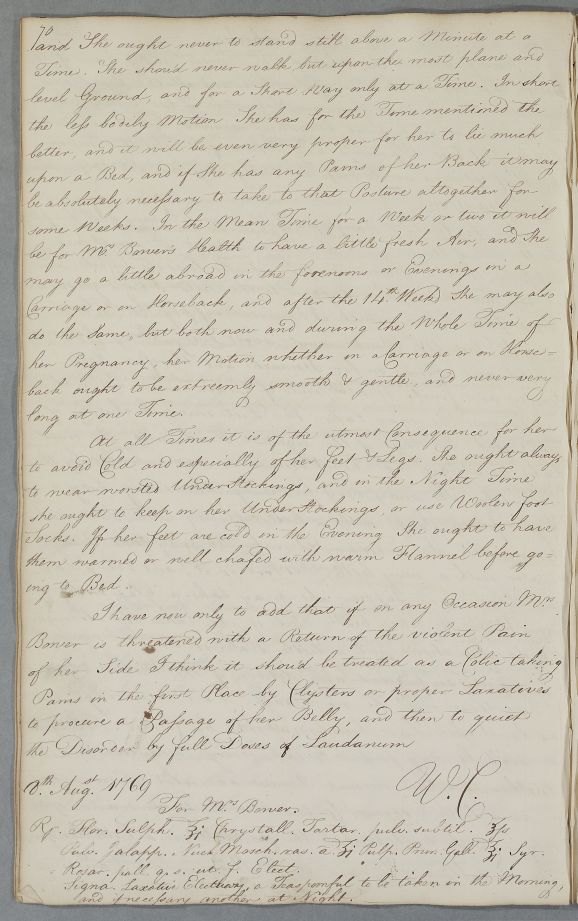 70
and She ought never to stand still above a Minute at a
Time. She should never walk but upon the most plane and
level Ground, and for a Short Way only at a Time. In short
the less bodily Motion She has for the Time mentioned the
better, and it will be even very proper for her to lie much
upon a Bed, and if She has any Pains of her Back it may
be absolutely necessary to take to that Posture altogether for
some Weeks. In the Mean Time for a Week or two it will
be for Mrs. Bower's Health to have a little fresh Air, and She
may go a little abroad in the forenoons or Evenings in a
Carriage or on Horseback, and after the 14th Week She may also
do the Same, but both now and during the Whole Time of
her Pregnancy, her Motion whether in a Carriage or on Horse=
back ought to be extreemly smooth & gentle, and never very
long at one Time.
At all Times it is of the utmost Consequence for her
to avoid Cold and especially of her feet & Legs. She ought always
to wear worsted Under Stockings, and in the Night Time
she ought to keep on her Under Stockings, or use Woolen foot
Socks. If her feet are cold in the Evening She ought to have
them warmed or well chafed with warm Flannel before go=
ing to Bed.
I have now only to add that if on any Occasion Mrs.
Bower is threatened with a Return of the violent Pain
of her Side I think it should be treated as a Colic taking
Pains in the first Place by Clysters or proper Laxatives
to procure a Passage of her Belly, and then to quiet
the Disorder by full Doses of Laudanum
W. C.
8th. Augst. 1769
For Mrs. Bower.
Rx. Flor. Sulph. ℥j Chrystall. Tartar. pulv. subtil. ℥ſs
Pulv. Jalapp. Nuc. Mosch. ras. a ʒj Pulp. Prun. Gall. ℥j Syr.
Rosar. pall. q. s. ut. f. Elect.
Signa. Laxative Electuary, a Teaspoonful to be taken in the Morning,
and if necessary another at Night.